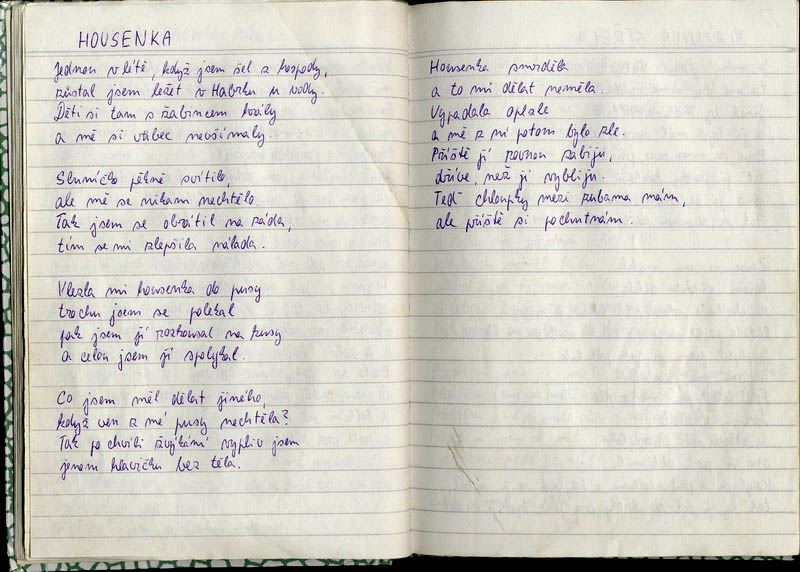 HOUSENKA
Jednou v létě, když jsem šel z hospody,
zůstal jsem ležet v Habrku u vody.
Děti si tam s žabincem hrály
a mě si vůbec nevšímaly.
Sluníčko pěkně svítilo,
ale mě se nikam nechtělo.
Tak jsem se obrátil na záda,
tím se mi zlepšila nálada.
Vlezla mi housenka do pusy
trochu jsem se polekal
pak jsem jí rozkousal na kusy
a celou jsem jí spolykal.
Co jsem měl dělat jiného,
když ven z mé pusy nechtěla?
Tak po chvíli žvýkání vypliv jsem
jenom hlavičku bez těla.
Housenka smrděla
a to mi dělat neměla.
Vypadala opale
a mě z ní potom bylo zle.
Příště jí rovnou zabiju,
dříve, než jí vybliju.
Teď chloupky mezi zubama mám,
ale příště si pochutnám.